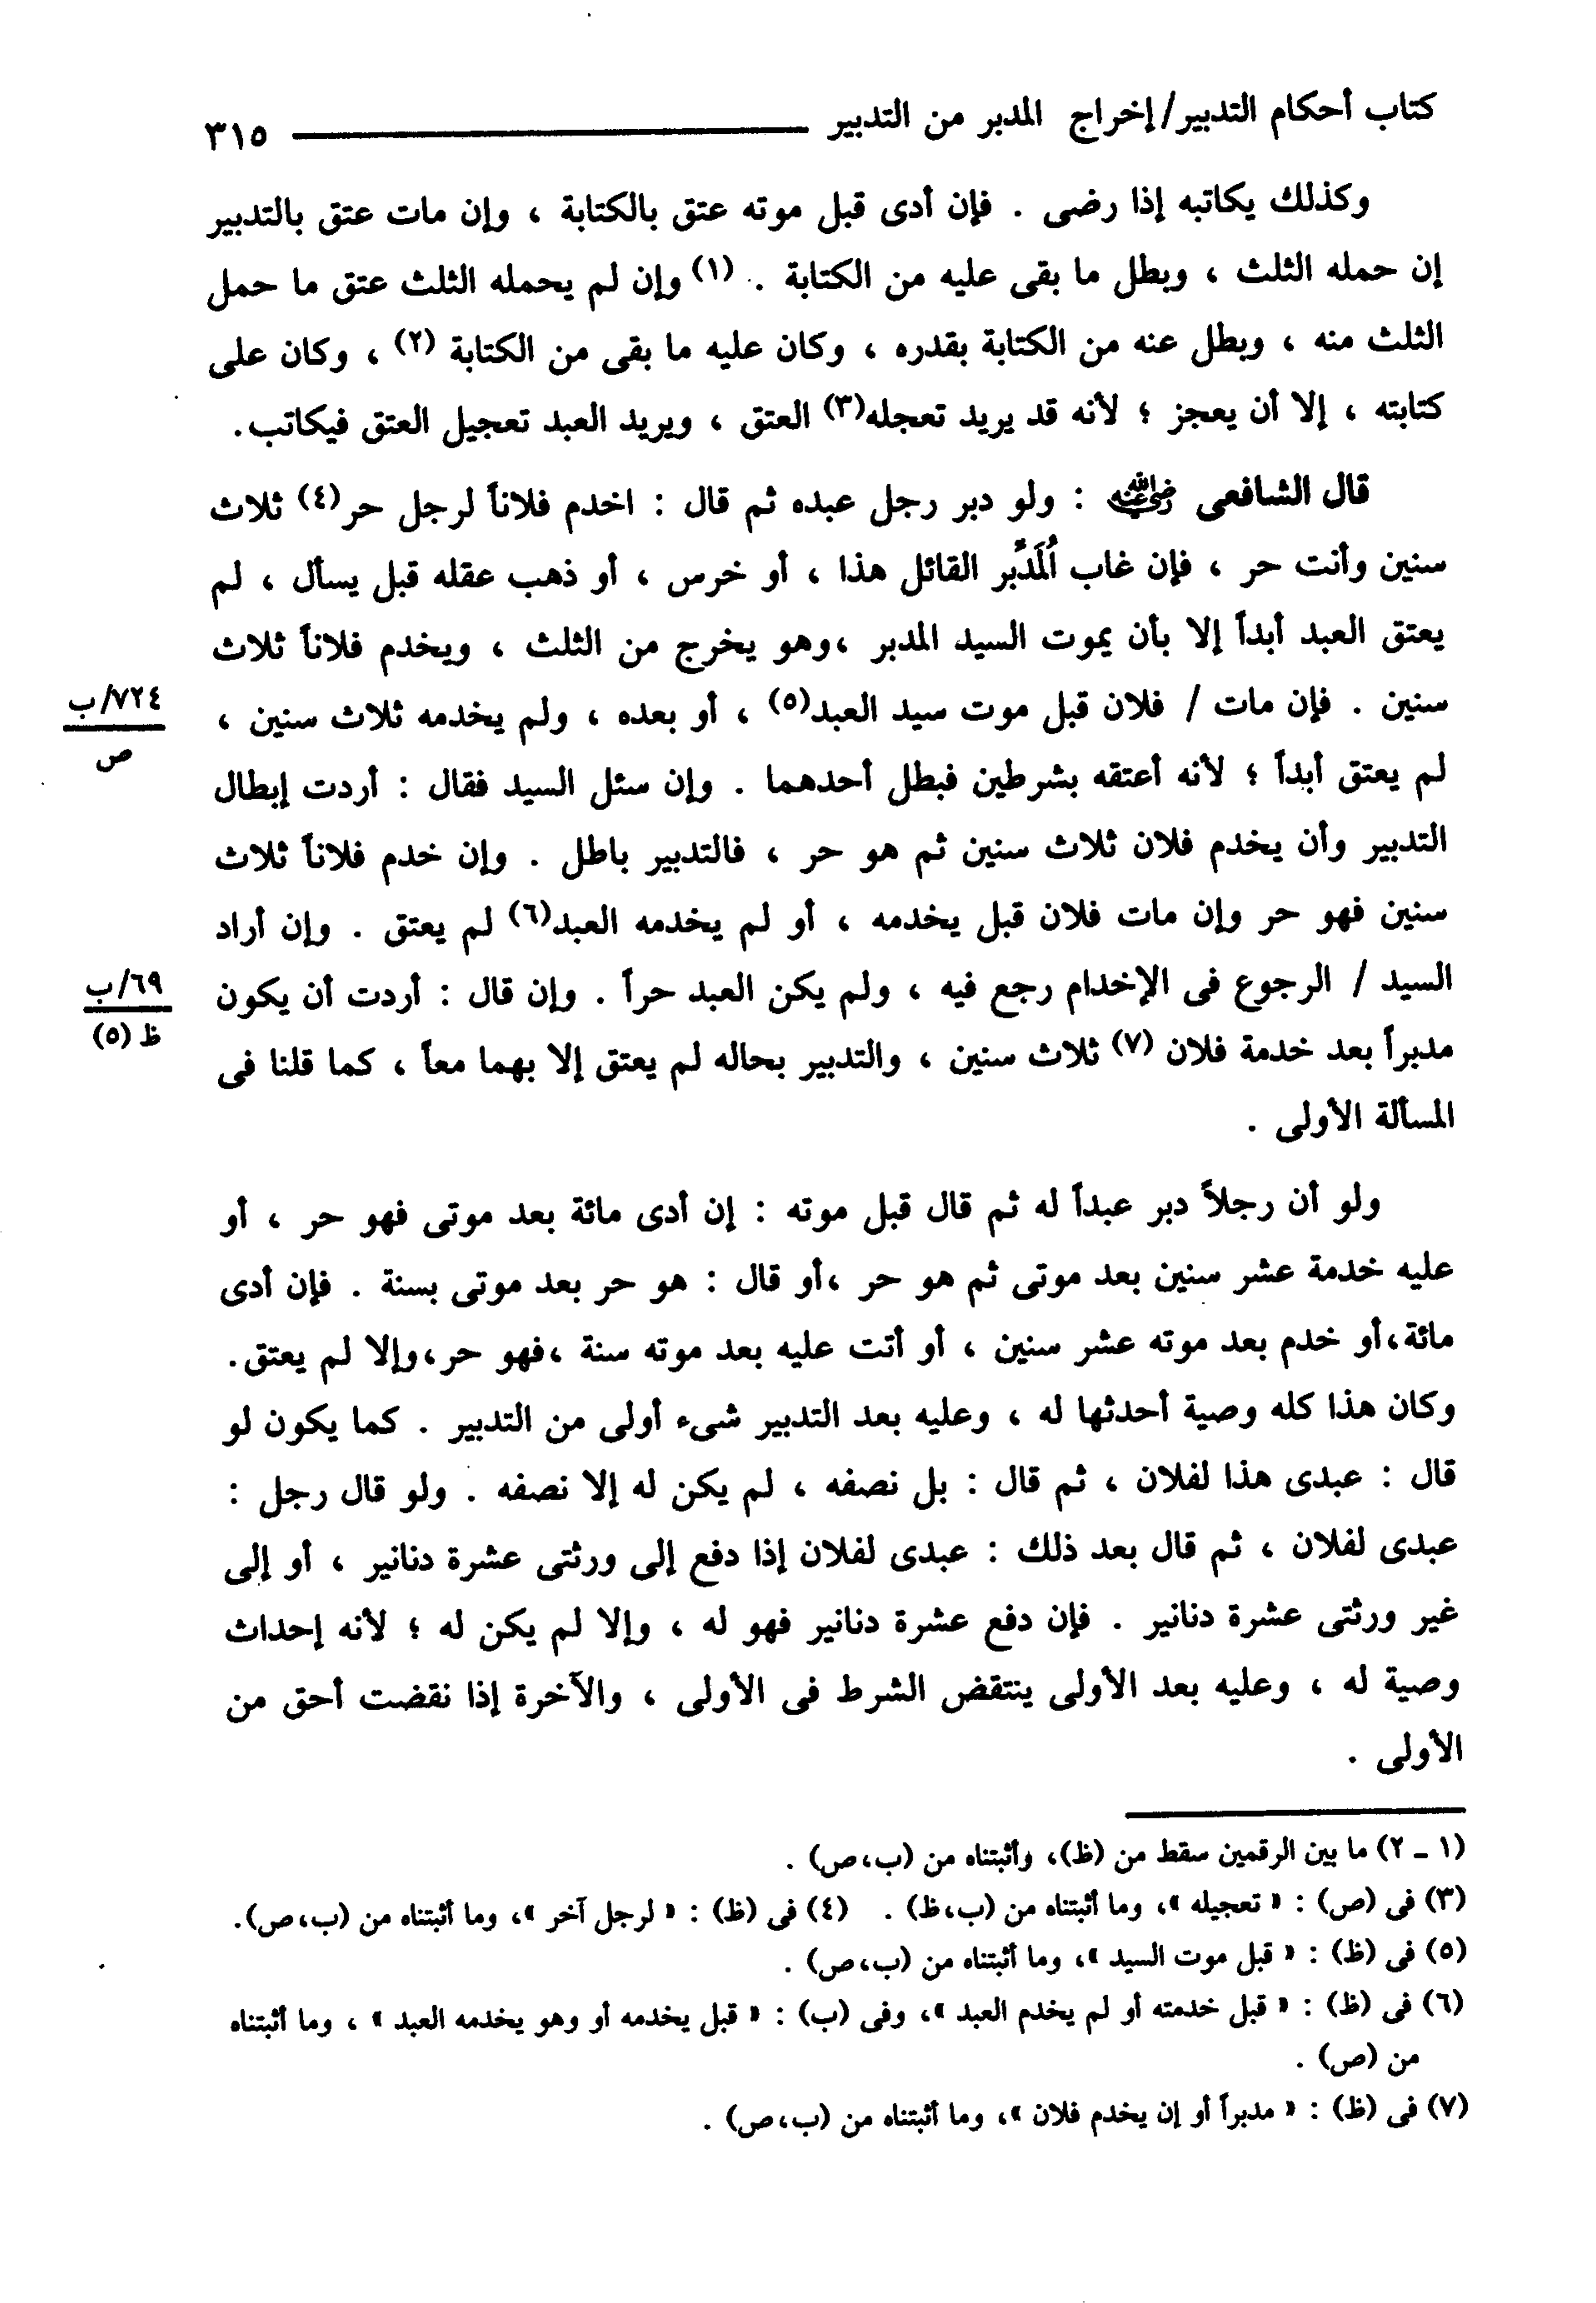 كتاب أحكام التدبير/ إخراج المدبر من التدبير ٣١٥
وكذلك يكاتبه إذا رضى . فإن أدى قبل موته عتق بالكتابة ، وإن مات عتق بالتدبير
إن حمله الثلث ، وبطل ما بقى عليه من الكتابة . (١) وإن لم يحمله الثلث عتق ما حمل
الثلث منه ، وبطل عنه من الكتابة بقدره ، وكان عليه ما بقى من الكتابة (٢) ، وكان على
كتابته ، إلا أن يعجز ؛ لأنه قد يريد تعجله(٣) العتق ، ويريد العبد تعجيل العتق فيكاتب.
قال الشافعى رضي الله عنه : ولو دبر رجل عبده ثم قال : اخدم فلاناً لرجل حر(٤) ثلاث
سنين وأنت حر ، فإن غاب اُلمَدبِّر القائل هذا ، أو خرس ، أو ذهب عقله قبل يسأل ، لم
يعتق العبد أبداً إلا بأن يموت السيد المدبر ،وهو يخرج من الثلث ، ويخدم فلاناً ثلاث
سنين . فإن مات / فلان قبل موت سيد العبد(٥) ، أو بعده ، ولم يخدمه ثلاث سنين ،
٧٢٤/ب
ص
لم يعتق أبداً ؛ لأنه أعتقه بشرطين فبطل أحدهما . وإن سئل السيد فقال : أردت إبطال
التدبير وأن يخدم فلان ثلاث سنين ثم هو حر ، فالتدبير باطل . وإن خدم فلاناً ثلاث
سنين فهو حر وإن مات فلان قبل يخدمه ، أو لم يخدمه العبد(٦) لم يعتق . وإن أراد
السيد / الرجوع فى الإخدام رجع فيه ، ولم يكن العبد حراً . وإن قال : أردت أن يكون
٦٩/ب
ظ (٥)
مدبراً بعد خدمة فلان (٧) ثلاث سنين ، والتدبير بحاله لم يعتق إلا بهما معاً ، كما قلنا فى
المسألة الأولى .
ولو أن رجلاً دبر عبداً له ثم قال قبل موته : إن أدى مائة بعد موتى فهو حر ، أو
عليه خدمة عشر سنين بعد موتى ثم هو حر ،أو قال : هو حر بعد موتى بسنة . فإن أدى
مائة،أو خدم بعد موته عشر سنين ، أو أتت عليه بعد موته سنة ،فهو حر،وإلا لم يعتق.
وكان هذا كله وصية أحدثها له ، وعليه بعد التدبير شىء أولى من التدبير . كما يكون لو
قال : عبدى هذا لفلان ، ثم قال : بل نصفه ، لم يكن له إلا نصفه . ولو قال رجل :
عبدى لفلان ، ثم قال بعد ذلك : عبدى لفلان إذا دفع إلى ورثتى عشرة دنانير ، أو إلى
غير ورثتى عشرة دنانير . فإن دفع عشرة دنانير فهو له ، وإلا لم يكن له ؛ لأنه إحداث
وصية له ، وعليه بعد الأولى ينتقض الشرط فى الأولى ، والآخرة إذا نقضت أحق من
الأولى .
(١ ـ ٢) ما بين الرقمين سقط من (ظ)، وأثبتناه من (ب،ص) .
(٣) فى (ص) : « تعجيله »، وما أثبتناه من (ب،ظ) . (٤) فى (ظ) : « لرجل آخر »، وما أثبتناه من (ب،ص).
(٥) فى (ظ) : « قبل موت السيد »، وما أثبتناه من (ب،ص) .
(٦) فى (ظ) : « قبل خدمته أو لم يخدم العبد »، وفى (ب) : « قبل يخدمه أو وهو يخدمه العبد » ، وما أثبتناه
من (ص) .
(٧) فى (ظ) : « مدبراً أو إن يخدم فلان »، وما أثبتناه من (ب،ص) .